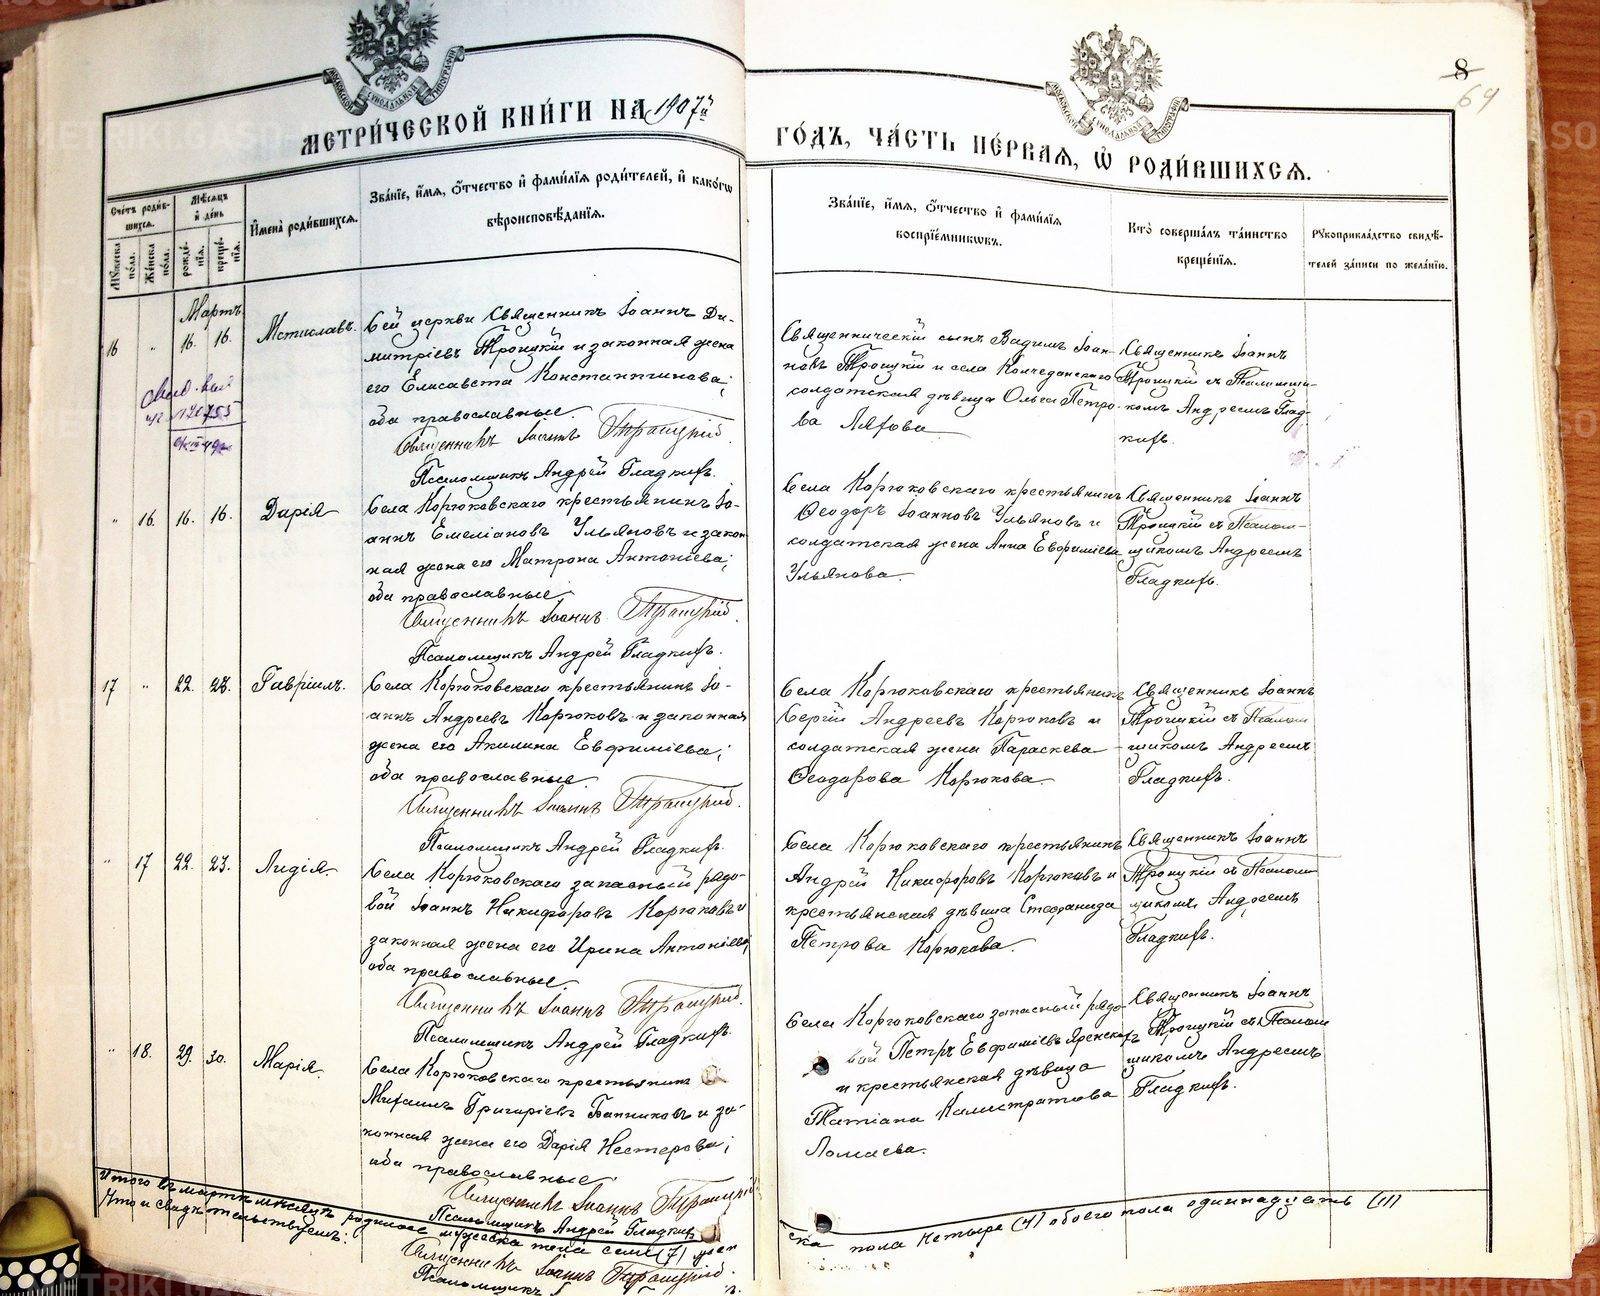 МЕТРИ́ЧЕСКОЙ КНИ́ГИ НА 1907й
ГО́ДЪ, ЧА́СТЬ ПЕ́РВАЯ, Ѡ РОДИ́ВШИХСЯ.
8
64
Сче́тъ роди́в-
шихся.
Му́жеска по́ла.
Же́нска по́ла.
Мѣ́сяцъ и҆ де́нь
рожде́-
нїя.
креще́-
нїя.
И҆мена̀ роди́вшихся.
Зва́нїе, и҆́мя, ѻ҆́тчество и҆ фами́лїя роди́телей, и҆ како́гѡ
вѣроисповѣ́данїя.
Зва́нїе, и҆́мя, ѻ҆́тчество и҆ фами́лїя
воспрїе́мникѡвъ.
Кто̀ соверша́лъ та́инство
креще́нїя.
Рꙋкоприкла́дство свидѣ́-
телей за́писи по жела́нїю.
Мартъ
16 " 16. 16. Мстиславъ.
Сей церкви Священникъ Іоаннъ Ди-
митріевъ Троицкій и законная жена
его Елисавета Константинова;
оба православные
Священникъ Іоаннъ Троицкій.
Псаломщикъ Андрей Гладкихъ.
Священническій сынъ Вадимъ Іоан-
новъ Троицкій и села Колчеданскаго
солдатская дѣвица Ольга Петро-
ва
Священникъ Іоаннъ
Троицкій съ Псаломщи-
комъ Андреемъ Глад-
кихъ.
" 16. 16. 16. Дарія
Села Корюковскаго крестьянинъ Іо-
аннъ Емеліановъ Ульяновъ и закон-
ная жена его Матрона Антоніева;
оба православные
Священникъ Іоаннъ Троицкій.
Псаломщикъ Андрей Гладкихъ.
Села Корюковскаго крестьянинъ
Ѳеодоръ Іоанновъ Ульяновъ и
солдатская жена Анна Евфиміева
Ульянова.
Священникъ Іоаннъ
Троицкій съ Псалом-
щикомъ Андреемъ
Гладкихъ.
17 " 22. 23. Гавріилъ.
Села Корюковскаго крестьянинъ Іо-
аннъ Андреевъ Корюковъ и законная
жена его Акилина Евфиміева;
оба православные
Священникъ Іоаннъ Троицкій.
Псаломщикъ Андрей Гладкихъ.
Села Корюковскаго крестьянинъ
Сергій Андреевъ Корюковъ и
солдатская жена Параскева
Ѳеодорова Корюкова.
Священникъ Іоаннъ
Троицкій съ Псалом-
щикомъ Андреемъ
Гладкихъ.
" 17 22. 23. Лидія.
Села Корюковскаго запасный рядо-
вой Іоаннъ Никифоровъ Корюковъ и
законная жена его Ирина Антоніева;
оба православные.
Священникъ Іоаннъ Троицкій.
Псаломщикъ Андрей Гладкихъ.
Села Корюковскаго крестьянинъ
Андрей Никифоровъ Корюковъ и
крестьянская дѣвица Стефанида
Петрова Корюкова.
Священникъ Іоаннъ
Троицкій съ Псалом-
щикомъ Андреемъ
Гладкихъ.
" 18. 29. 30. Марія.
Села Корюковскаго крестьянинъ
Михаилъ Григоріевъ Банниковъ и за-
конная жена его Дарія Нестерова;
оба православные.
Священникъ Іоаннъ Троицкій
Псаломщикъ Андрей Гладкихъ
Села Корюковскаго запасный рядо-
вой Петръ Евфиміевъ
и крестьянская дѣвица
Татіана Калистратова
Ломаева.
Священникъ Іоаннъ
Троицкій съ Псалом-
щикомъ Андреемъ
Гладкихъ.
Итого въ мартѣ мѣсяцѣ родилось мужеска пола семь (7) жен
ска пола четыре (4) обоего пола одиннадцать (11)
Что и свидѣтельствуемъ:
Священникъ Іоаннъ Троицкій.
Псаломщикъ
METRIKI.GASO